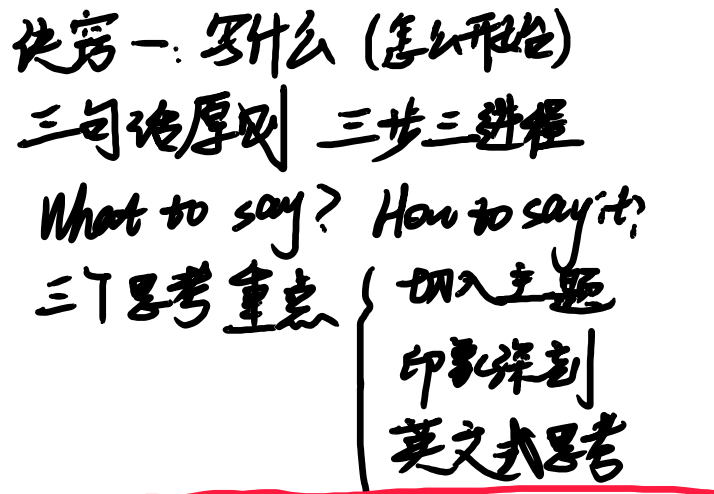 诀窍一：写什么（怎么开始）
三句话原则 三步三进程
What to say? How to say it?
三个思考重点 { 切入主题
印象深刻
英文式思考